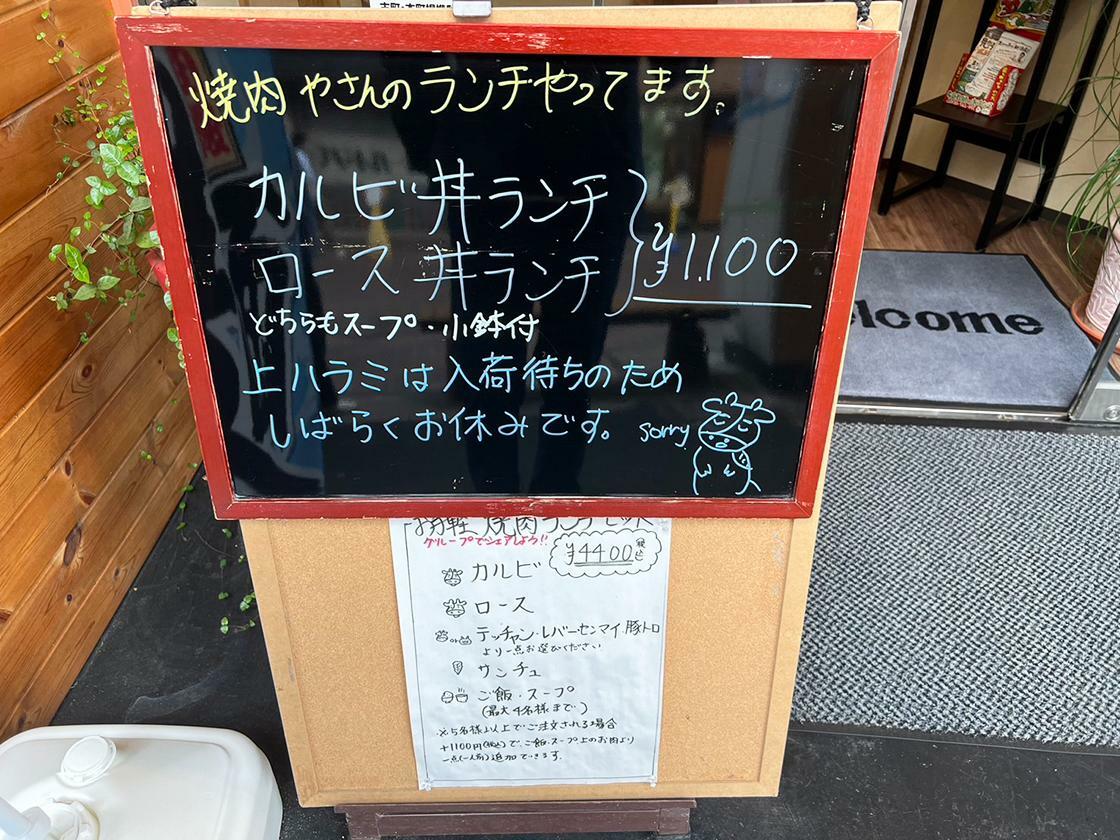 焼肉やさんのランチやってます。
カルビ丼ランチ
ロース丼ランチ
¥1,100
どちらもスープ・小鉢付
上ハラミは入荷待ちのため
しばらくお休みです。
sorry
elcome
お手軽 焼肉ランチセット
グループでシェアしよう!!
¥4400税込
カルビ
ロース
or
テッチャン・レバーセンマイ・豚トロ
より一点お選びください
サンチュ
ご飯・スープ
(最大4名様まで)
※5名様以上でご注文される場合
+1100円(税込)で、ご飯・スープ上のお肉より
一点(一人前)追加できます。